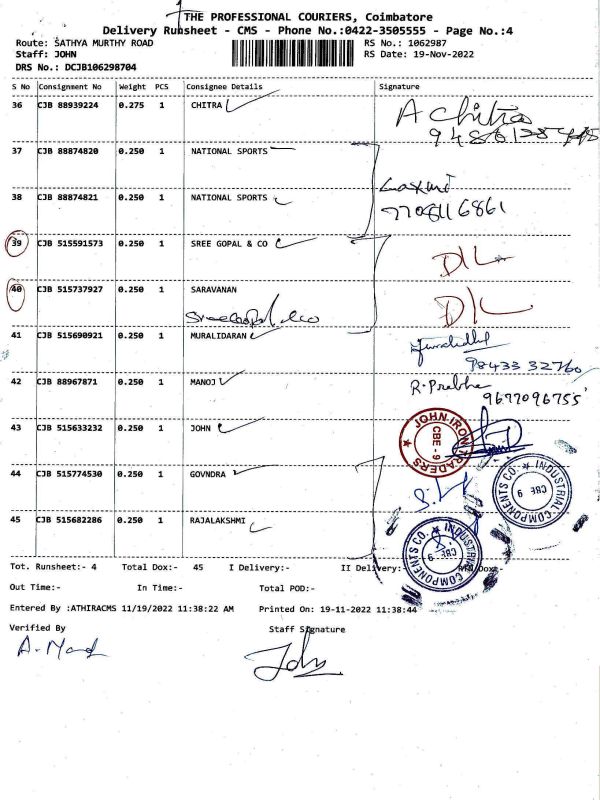 THE PROFESSIONAL COURIERS, Coimbatore
Delivery Runsheet - CMS - Phone No.:0422-3505555 - Page No.:4
Route: SATHYA MURTHY ROAD
RS No.: 1062987
Staff: JOHN
RS Date: 19-Nov-2022
DRS No.: DCJB106298704
S No Consignment No Weight PCS Consignee Details Signature
36 CJB 88939224 0.275 1 CHITRA A Chitra
37 CJB 88874820 0.250 1 NATIONAL SPORTS
Laxmi
38 CJB 88874821 0.250 1 NATIONAL SPORTS 7708116861
39 CJB 515591573 0.250 1 SREE GOPAL & CO D/L
40 CJB 515737927 0.250 1 SARAVANAN D/L
41 CJB 515690921 0.250 1 MURALIDARAN
98433 32760
42 CJB 88967871 0.250 1 MANOJ R.Prabha
9677096755
43 CJB 515633232 0.250 1 JOHN
JOHN IRON TRADERS
CBE - 9
44 CJB 515774530 0.250 1 GOVNDRA
INDUSTRIAL COMPONENTS CO.
CBE 9
45 CJB 515682286 0.250 1 RAJALAKSHMI
INDUSTRIAL COMPONENTS CO.
CBE 9
Tot. Runsheet:- 4 Total Dox:- 45 I Delivery:- II Delivery:-
Out Time:- In Time:- Total POD:-
Entered By :ATHIRACMS 11/19/2022 11:38:22 AM Printed On: 19-11-2022 11:38:44
Verified By Staff Signature
John